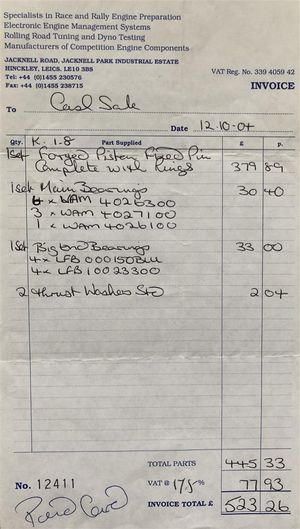 Specialists in Race and Rally Engine Preparation
Electronic Engine Management Systems
Rolling Road Tuning and Dyno Testing
Manufacturers of Competition Engine Components
JACKNELL ROAD, JACKNELL PARK INDUSTRIAL ESTATE
HINCKLEY, LEICS. LE10 3BS
Tel: +44 (0)1455 230576
Fax: +44 (0)1455 238715
VAT Reg. No. 339 4059 42
INVOICE
To Cash Sale
Date 12.10.04
Qty. K. 1.8 Part Supplied £ p.
1 set Forged Pistons Fixed Pin
Complete with Rings 379 89
1 set Main Bearings 30 40
6 x WAM 4026300
3 x WAM 4027100
1 x WAM 4026100
1 set Big End Bearings 33 00
4 x LFB 000150 Blu
4 x LFB 10023300
2 thrust Washers Std 2 04
TOTAL PARTS 445 33
No. 12411 VAT @ 17.5 % 77 93
Paid Card INVOICE TOTAL £ 523 26